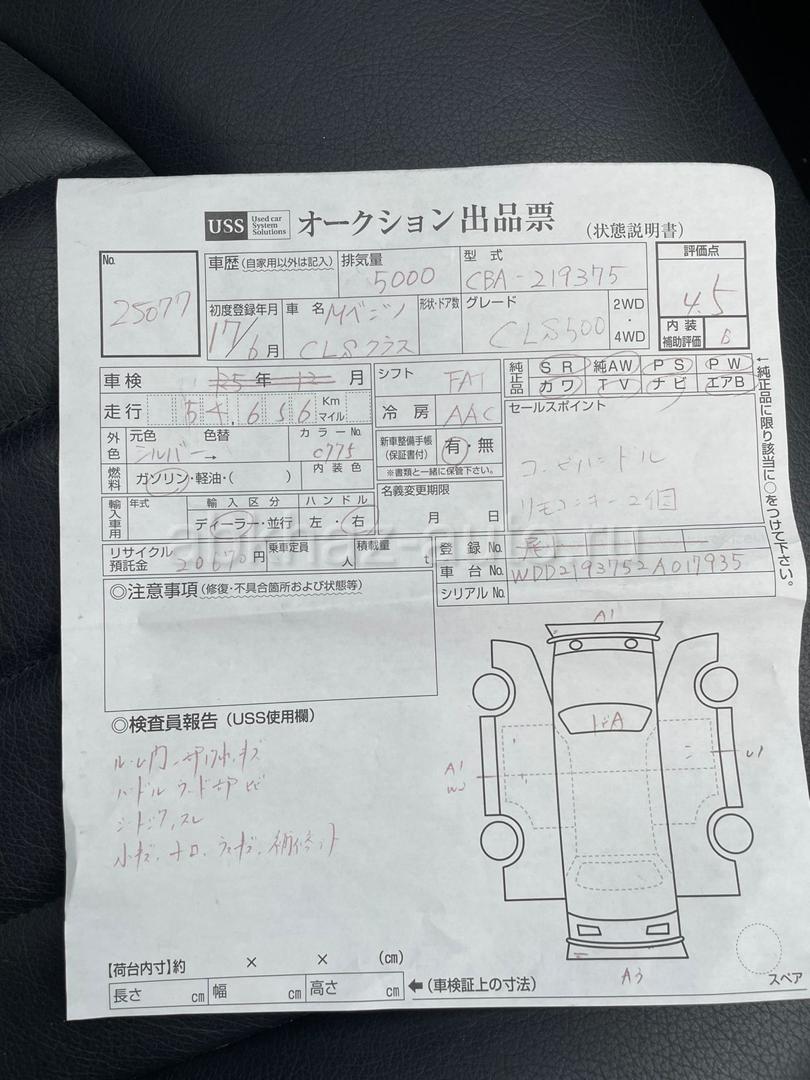 USS Used car System Solutions オークション 出品票 (状態説明書)
No. 25077
車歴 (自家用以外は記入)
排気量 5000
型式 CBA-219375
評価点 4.5
初度登録年月 17/6月
車名 Mベンツ CLSクラス
形状・ドア数
グレード CLS500
2WD・4WD
内装補助評価 B
車検 25年 12月
シフト FAT
純正品 SR 純AW PS PW
カワ TV ナビ エアB
走行 54,656 Km マイル
冷房 AAC
セールスポイント
コンビハンドル
リモコンキー2個
←純正品に限り該当に○をつけて下さい。
外色 元色 シルバー→ 色替
カラーNo. C775
新車整備手帳(保証書付) 有・無
※書類と一緒に保管下さい。
燃料 ガソリン・軽油・( )
内装色
名義変更期限 月 日
輸入車用 年式
輸入区分 ディーラー・並行
ハンドル 左・右
リサイクル預託金 20670円
乗車定員 人
積載量 t
登録No.
車台No. WDD2193752A017935
シリアルNo.
◎注意事項 (修復・不具合箇所および状態等)
A1
◎検査員報告 (USS使用欄)
ハンドル
A1
U1
A3
スペア
【荷台内寸】約 × × (cm)
長さ cm 幅 cm 高さ cm ← (車検証上の寸法)
arkhaz-auto.ru